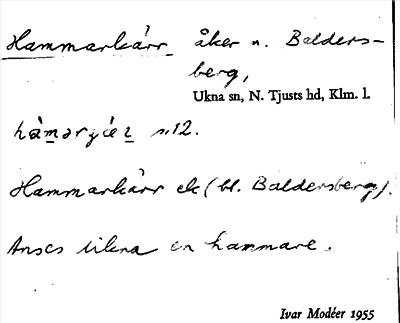 Hammarkärr åker n. Balders-
berg,
Ukna sn, N. Tjusts hd, Klm. l.
s. 12.
Hammarkärr ek (bl. Baldersberg).
Anses likna en hammare.
Ivar Modéer 1955